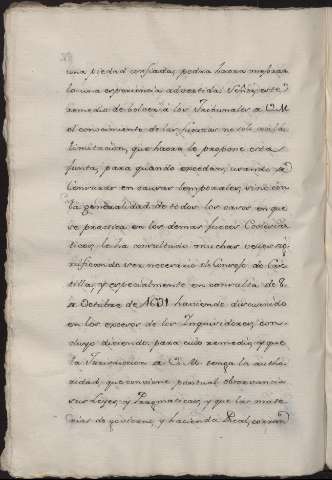 una piedad confiada, podra hacer mejorar
lo una experiencia advertida: Señor, este
remedio de bolver á los Tribunales de V.M.
el conocimiento de las fuerzas no solo con la
limitacion, que hacen le propone esta
Junta, para quando excedan, usando de
Censuras en causas temporales, sino con
la generalidad de todos los casos en que
se practica en los demas Jueces Eclesias
ticos, le ha consultado muchas veces sig
nificandole ser necesario el Consejo de Cas
tilla, y especialmente en consulta de 8.
de Octubre de 1631 haviendo discurrido
en los excesos de los Inquisidores, con
cluyo diciendo: para cuio remedio, y que
la Jurisdicion de V.M. tenga la autho
ridad, que conviene, puntual observancia
sus Leyes, y Pragmaticas, y que las mate
rias de govierno, y hacienda Real, corran